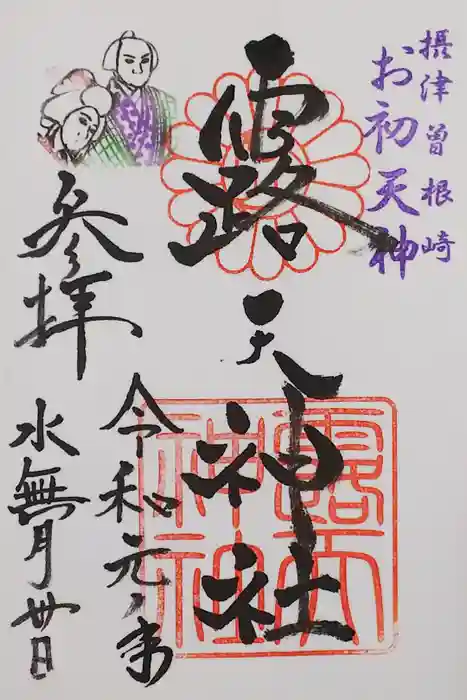 摂津曽根崎
お初天神
露天神社
参拝
令和元年
水無月廿日
露天
神社